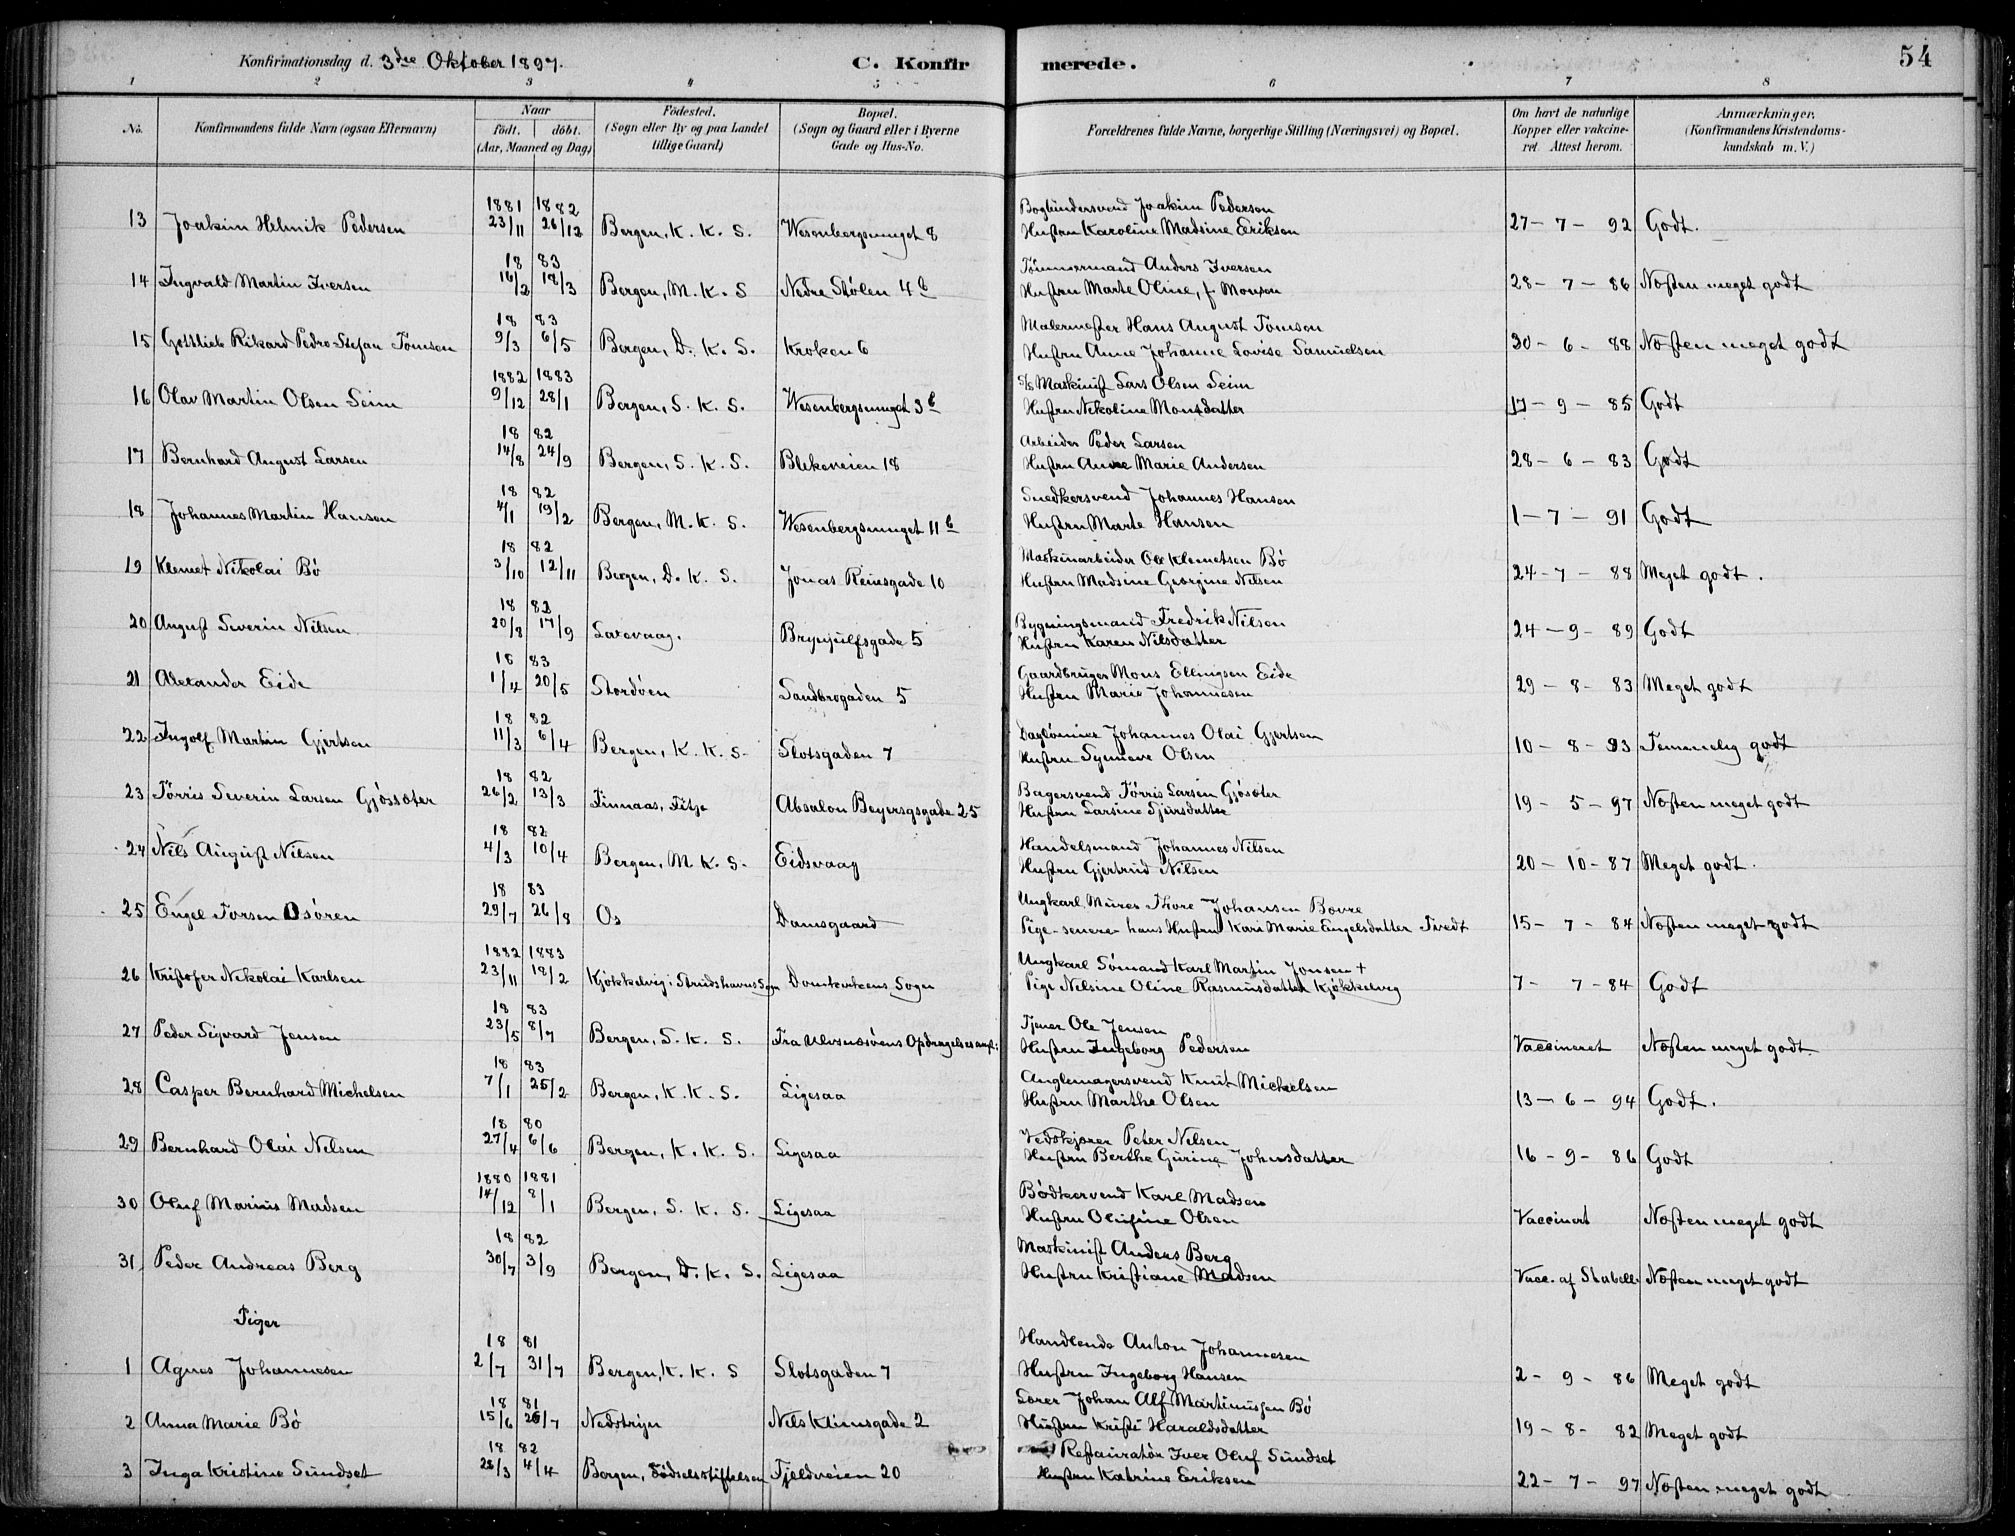 Konfirmationsdag d. 3die Oktober 1897.
C. Konfirmerede.
54
1 2 3 4 5 6 7 8
No. Konfirmandens fulde Navn (ogsaa Efternavn) Naar födt. döbt. (Aar, Maaned og Dag) Födested. (Sogn eller By og paa Landet tillige Gaard) Bopæl. (Sogn og Gaard eller i Byerne Gade og Hus-No. Forældrenes fulde Navne, borgerlige Stilling (Næringsvei) og Bopæl. Om havt de naturlige Kopper eller vakcineret. Attest herom. Anmærkninger. (Konfirmandens Kristendomskundskab m. V.)
1881 1882 Bogbindersvend Joakim Pedersen
13 Joakim Helmik Pedersen 23/11 26/12 Bergen, K. K. S. Wesenbergsmuget 8 Hustru Karoline Madsine Eriksen 27-7-92 Godt.
18 83 Tømmermand Anders Iversen
14 Ingvald Martin Iversen 16/2 18/3 Bergen, M. K. S Nedre Stølen 4b Hustru Marte Oline, f. Monsen 28-7-86 Næsten meget godt
18 83 Malermester Hans August Tømsen
15 Gottlieb Rikard Pedro Stefan Tømsen 9/3 6/5 Bergen, D. K. S. Kroken 6 Hustru Anne Johanne Lovise Samuelsen 30-6-88 Næsten meget godt
1882 1883 S/s Maskinist Lars Olsen Seim
16 Olav Martin Olsen Seim 9/12 28/1 Bergen, S. K. S. Wesenbergsmuget 3b Hustru Nikoline Monsdatter 17-9-85 Godt
18 82 Arbeider Peder Larsen
17 Bernhard August Larsen 14/8 24/9 Bergen, S. K. S. Blekeveien 18 Hustru Anne Marie Andersen 28-6-83 Godt
18 82 Snedkersvend Johannes Hansen
18 Johannes Martin Hansen 4/1 19/2 Bergen, M. K. S. Wesenbergsmuget 11b Hustru Marte Hansen 1-7-91 Godt
18 82 Maskinarbeider Ole Klemetsen Bø
19 Klemet Nikolai Bø 3/10 12/11 Bergen, D. K. S. Jonas Reinsgade 10 Hustru Madsine Georgine Nilsen 24-7-88 Meget godt.
18 82 Bygningsmand Fredrik Nilsen
20 August Severin Nilsen 20/8 17/9 Laxevaag. Brynjulfsgade 5 Hustru Karen Nilsdatter 24-9-89 Godt
18 83 Gaardbruger Mons Ellingsen Eide
21 Alexander Eide 1/4 20/5 Stordøen Sandbrogaden 5 Hustru Marie Johannesen 29-8-83 Meget godt
18 82 Dagløнner Johannes Olai Gjertsen
22 Ingolf Martin Gjertsen 11/3 6/4 Bergen, K. K. S. Slotsgaden 7 Hustru Synneve Olsen 10-8-93 Temmelig godt
18 82 Bagersvend Tørris Larsen Gjøsæter
23 Tørris Severin Larsen Gjøssæter 26/2 13/3 Finnaas, Fitje Absalon Beyersgsgade 25 Hustru Larsine Sjursdatter 19-5-97 Næsten meget godt
18 82 Handelsmand Johannes Nilsen
24 Nils August Nilsen 4/3 10/4 Bergen, M. K. S. Eidsvaag Hustru Gjertrud Nilsen 20-10-87 Meget godt.
18 83 Ungkarl, Murer Thore Johansen Bovre
25 Engel Torsen Osøren 29/7 26/8 Os Damsgaard Pige senere hans Hustru Kari Marie Engelsdatter Tvedt 15-7-84 Næsten meget godt
1882 1883 Ungkarl Sømand Karl Martin Jonsen +
26 Kristofer Nikolai Karlsen 23/11 18/2 Kjøkkelvig i Strudshavns Sogn Domkirkens Sogn Pige Nilsine Oline Rasmusdatter Kjøkkelvig 7-7-84 Godt
18 83 Tjener Ole Jensen
27 Peder Sigvard Jensen 23/5 8/7 Bergen, S. K. S. Fra Ulvsnæsøens Opdragelsesanst: Hustru Ingeborg Pedersen Vaccineret Næsten meget godt
18 83 Anglemagersvend Knut Michelsen
28 Casper Bernhard Michelsen 7/1 25/2 Bergen, K. K. S. Ligesaa Hustru Marthe Olsen 13-6-94 Godt.
18 80 Vedskjører Peter Nilsen
29 Bernhard Olai Nilsen 27/4 6/6 Bergen, K. K. S. Ligesaa Hustru Berthe Gurine Johnsdatter 16-9-86 Godt
1880 1881 Bødkersvend Karl Madsen
30 Oluf Marius Madsen 14/12 8/1 Bergen, S. K. S. Ligesaa Hustru Olufine Olsen Vaccinert Næsten meget godt
18 82 Maskinist Anders Berg
31 Peder Andreas Berg 30/7 3/9 Bergen, D. K. S. Ligesaa Hustru Kristiane Madsen Vacc. af Stabell Næsten meget godt
Piger
18 81 Handlende Anton Johannesen
1 Agnes Johannesen 2/7 31/7 Bergen, K. K. S Slotsgaden 7 Hustru Ingeborg Hansen 2-9-86 Meget godt
18 81 Lærer Johan Alf Martinussen Bø
2 Anna Marie Bø 15/6 26/7 Nedstryn Nils Klimsgade 2 Hustru Kristi Haraldsdatter 19-8-82 Meget godt
18 82 Restauratør Iver Oluf Sundset
3 Inga Kristine Sundset 28/3 4/4 Bergen, Fødselsstiftelsen Fjeldveien 20 Hustru Katrine Eriksen 22-7-97 Næsten meget godt